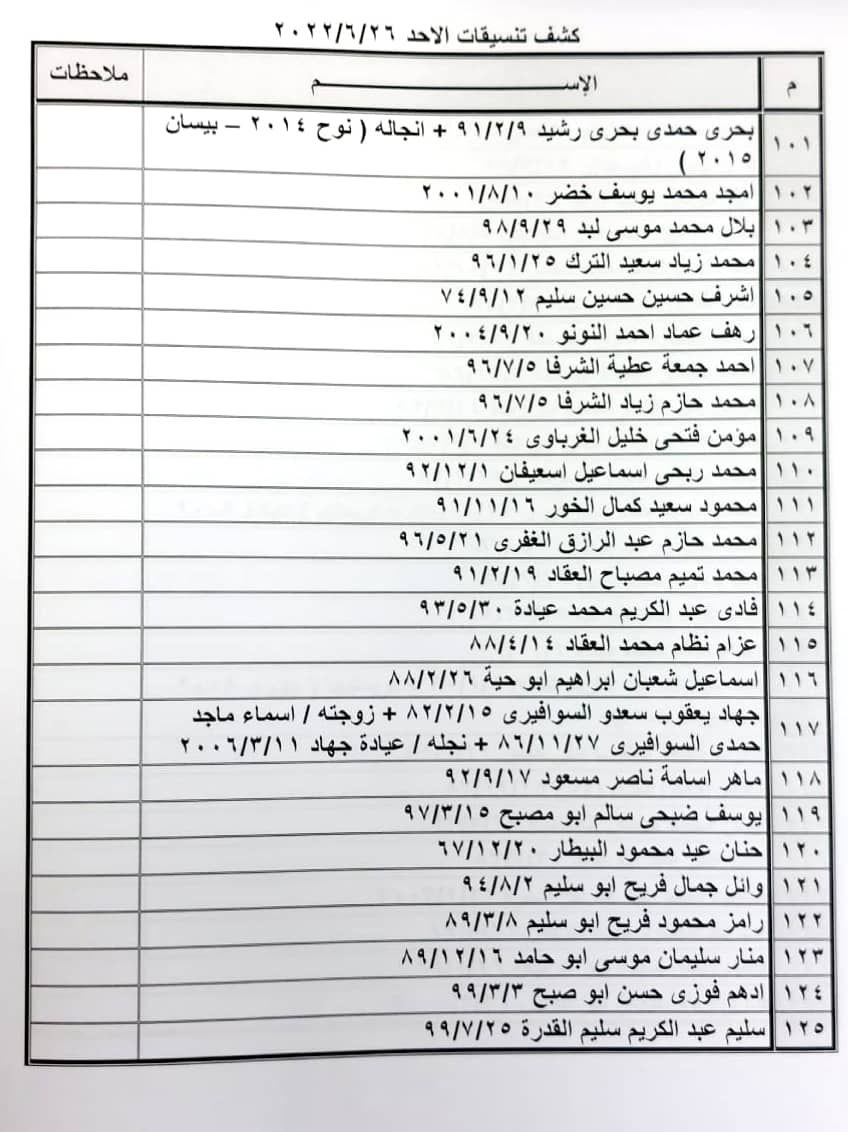 كشف تنسيقات الاحد ٢٠٢٢/٦/٢٦
م الإســـــــــم ملاحظات
١٠١ بحرى حمدى بحرى رشيد ٩١/٢/٩ + انجاله ( نوح ٢٠١٤ – بيسان
٢٠١٥ )
١٠٢ امجد محمد يوسف خضر ٢٠٠١/٨/١٠
١٠٣ بلال محمد موسى لبد ٩٨/٩/٢٩
١٠٤ محمد زياد سعيد الترك ٩٦/١/٢٥
١٠٥ اشرف حسين حسين سليم ٧٤/٩/١٢
١٠٦ رهف عماد احمد النونو ٢٠٠٤/٩/٢٠
١٠٧ احمد جمعة عطية الشرفا ٩٦/٧/٥
١٠٨ محمد حازم زياد الشرفا ٩٦/٧/٥
١٠٩ مؤمن فتحى خليل الغرباوى ٢٠٠١/٦/٢٤
١١٠ محمد ربحى اسماعيل اسعيفان ٩٢/١٢/١
١١١ محمود سعيد كمال الخور ٩١/١١/١٦
١١٢ محمد حازم عبد الرازق الغفرى ٩٦/٥/٢١
١١٣ محمد تميم مصباح العقاد ٩١/٢/١٩
١١٤ فادى عبد الكريم محمد عيادة ٩٣/٥/٣٠
١١٥ عزام نظام محمد العقاد ٨٨/٤/١٤
١١٦ اسماعيل شعبان ابراهيم ابو حية ٨٨/٢/٢٦
١١٧ جهاد يعقوب سعدو السوافيرى ٨٢/٢/١٥ + زوجته / اسماء ماجد
حمدى السوافيرى ٨٦/١١/٢٧ + نجله / عيادة جهاد ٢٠٠٦/٣/١١
١١٨ ماهر اسامة ناصر مسعود ٩٢/٩/١٧
١١٩ يوسف ضبحى سالم ابو مصبح ٩٧/٣/١٥
١٢٠ حنان عيد محمود البيطار ٦٧/١٢/٢٠
١٢١ وائل جمال فريح ابو سليم ٩٤/٨/٢
١٢٢ رامز محمود فريح ابو سليم ٨٩/٣/٨
١٢٣ منار سليمان موسى ابو حامد ٨٩/١٢/١٦
١٢٤ ادهم فوزى حسن ابو صبح ٩٩/٣/٣
١٢٥ سليم عبد الكريم سليم القدرة ٩٩/٧/٢٥